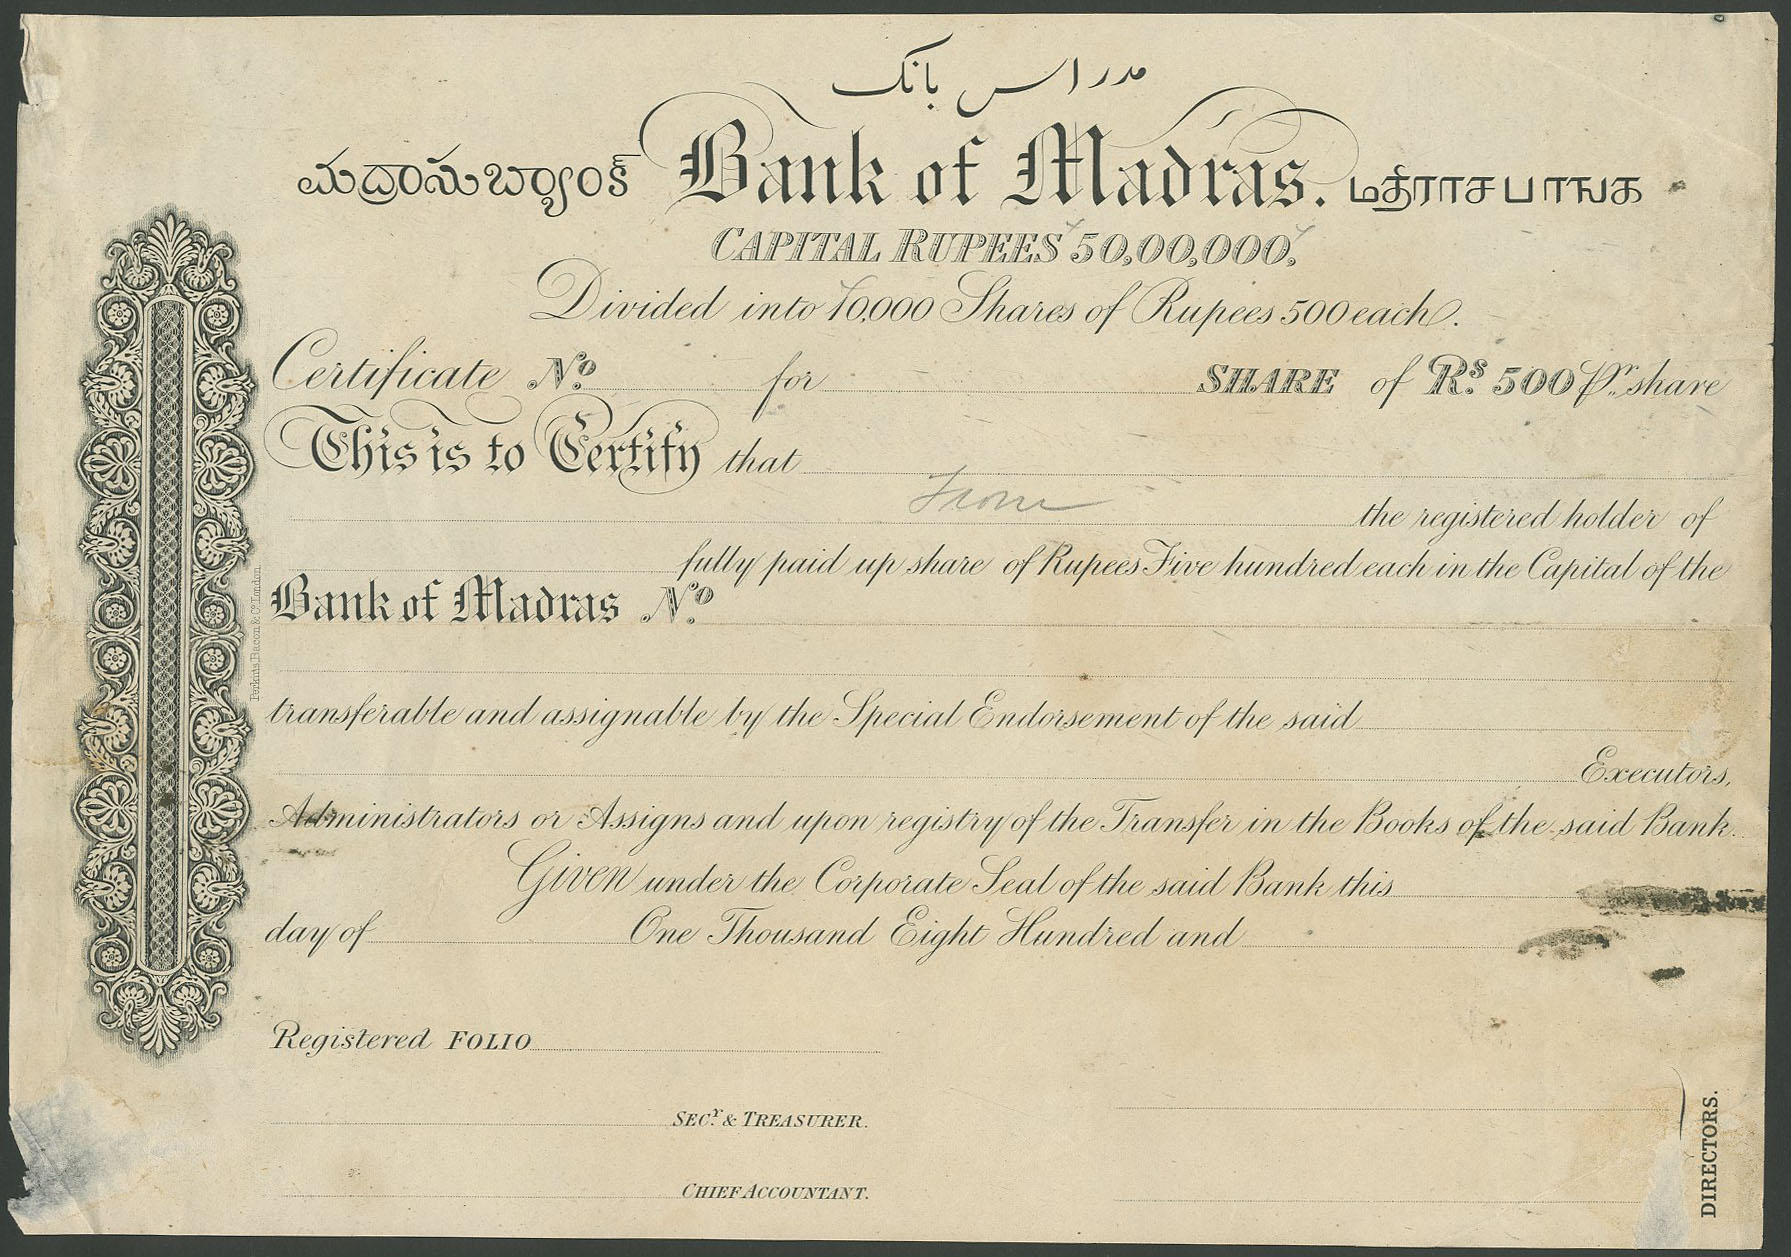 مدراس بانک
మద్రాసుబ్యాంక్ Bank of Madras. மத்ராசபாஙக
CAPITAL RUPEES 50,00,000,
Divided into 10,000 Shares of Rupees 500 each.
Certificate No. for SHARE of Rs. 500 Pr. share
This is to Certify that
the registered holder of
fully paid up share of Rupees Five hundred each in the Capital of the
Bank of Madras No.
transferable and assignable by the Special Endorsement of the said
Executors,
Administrators or Assigns and upon registry of the Transfer in the Books of the said Bank.
Given under the Corporate Seal of the said Bank this
day of One Thousand Eight Hundred and
Registered FOLIO
SECY. & TREASURER.
CHIEF ACCOUNTANT.
DIRECTORS.
Perkins, Bacon & Co. London.